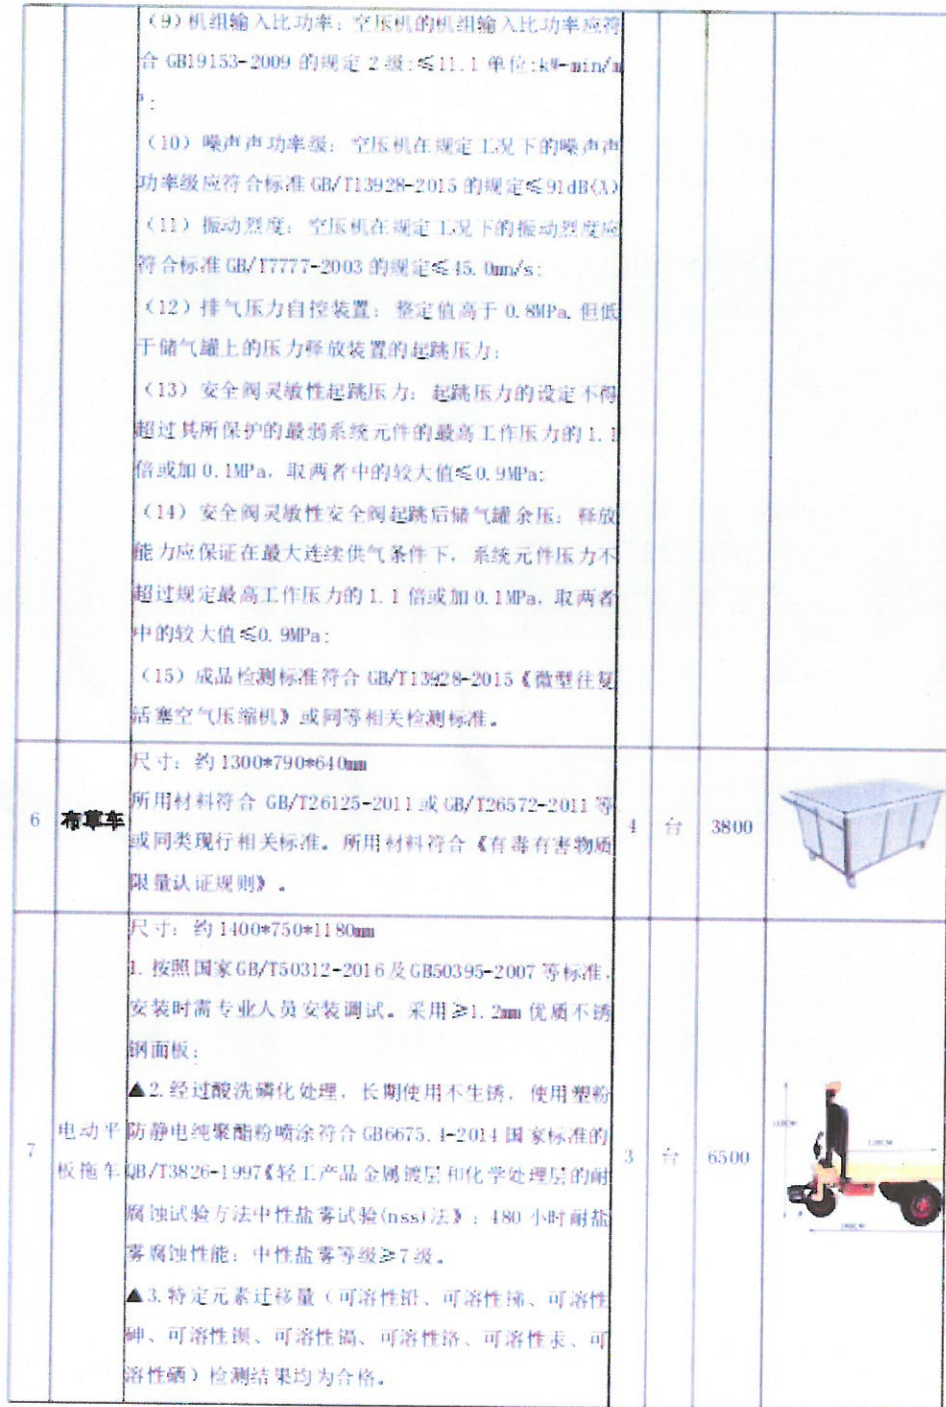 （9）机组输入比功率：空压机的机组输入比功率应符
合 GB19153-2009 的规定 2 级:≤11.1 单位:kW·min/m
³；
（10）噪声声功率级：空压机在规定工况下的噪声声
功率级应符合标准 GB/T13928-2015 的规定≤91dB(A)
（11）振动烈度：空压机在规定工况下的振动烈度应
符合标准 GB/T7777-2003 的规定≤45.0mm/s;
（12）排气压力自控装置：整定值高于 0.8MPa,但低
于储气罐上的压力释放装置的起跳压力；
（13）安全阀灵敏性起跳压力：起跳压力的设定不得
超过其所保护的最弱系统元件的最高工作压力的 1.1
倍或加 0.1MPa，取两者中的较大值≤0.9MPa;
（14）安全阀灵敏性安全阀起跳后储气罐余压：释放
能力应保证在最大连续供气条件下，系统元件压力不
超过规定最高工作压力的 1.1 倍或加 0.1MPa，取两者
中的较大值≤0.9MPa;
（15）成品检测标准符合 GB/T13928-2015《微型往复
活塞空气压缩机》或同等相关检测标准。
6
布草车
尺寸：约 1300*790*640mm
所用材料符合 GB/T26125-2011 或 GB/T26572-2011 等
或同类现行相关标准。所用材料符合《有毒有害物质
限量认证规则》。
4
台
3800
7
电动平
板拖车
尺寸：约 1400*750*1180mm
1.按照国家 GB/T50312-2016 及 GB50395-2007 等标准，
安装时需专业人员安装调试。采用≥1.2mm 优质不锈
钢面板；
▲2.经过酸洗磷化处理，长期使用不生锈，使用塑粉
防静电纯聚酯粉喷涂符合 GB6675.4-2014 国家标准的
QB/T3826-1997《轻工产品金属镀层和化学处理层的耐
腐蚀试验方法中性盐雾试验(nss)法》；480 小时耐盐
雾腐蚀性能：中性盐雾等级≥7 级。
▲3.特定元素迁移量（可溶性铅、可溶性锑、可溶性
砷、可溶性钡、可溶性镉、可溶性铬、可溶性汞、可
溶性硒）检测结果均为合格。
3
台
6500